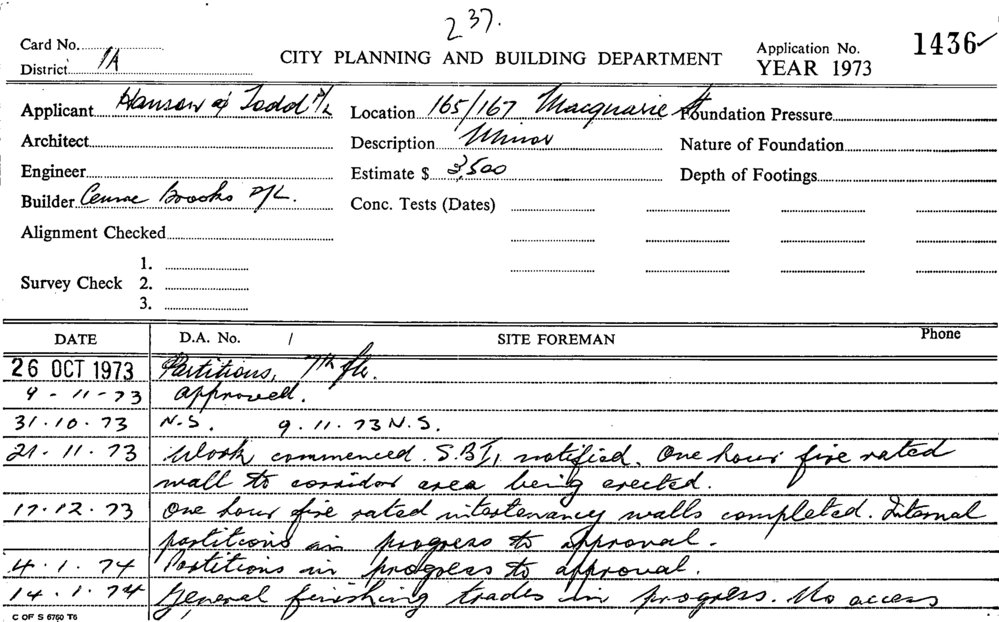 237.
Card No.
District 1A
CITY PLANNING AND BUILDING DEPARTMENT
Application No. 1436✓
YEAR 1973
Applicant Hanson & Todd P/L
Location 165/167 Macquarie St
Foundation Pressure
Architect
Description Minor
Nature of Foundation
Engineer
Estimate $ 3,500
Depth of Footings
Builder Brooks P/L.
Conc. Tests (Dates)
Alignment Checked
Survey Check 1.
2.
3.
DATE D.A. No. / SITE FOREMAN Phone
26 OCT 1973 Partitions, 7th flr.
9-11-73 approved.
31.10.73 N.S. 9.11.73 N.S.
21.11.73 Work commenced. S.B.I. notified. One hour fire rated
wall to corridor area being erected.
17.12.73 One hour fire rated intertenancy walls completed. Internal
partitions in progress to approval.
4.1.74 Partitions in progress to approval.
14.1.74 General finishing trades in progress. No access
C OF S 6760 T6